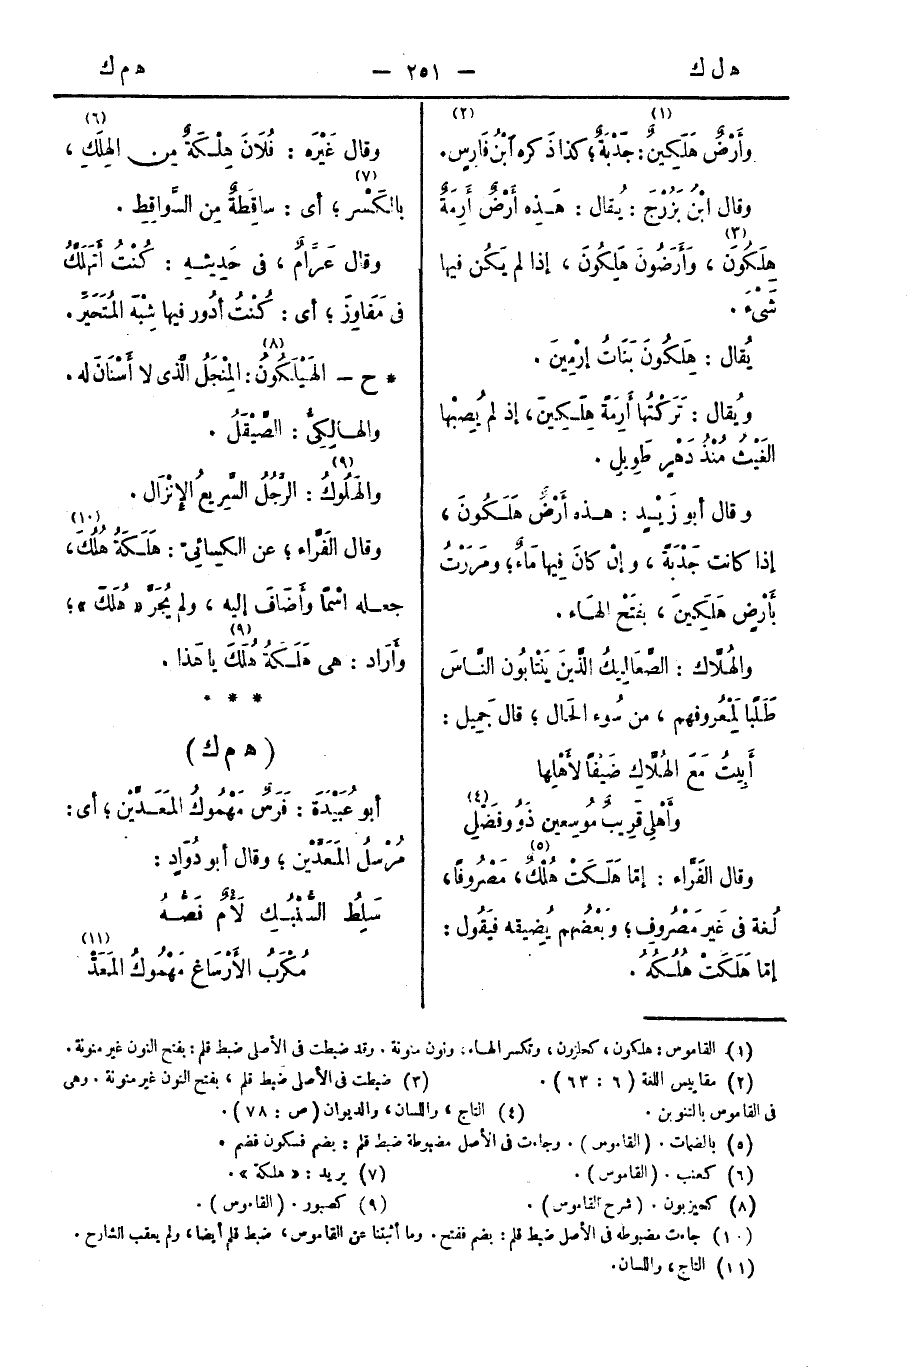 ه ل ك — ٢٥١ — ه م ك
(١) (٢)
وأَرْضٌ هَلَكِينٌ: جَدْبَةٌ؛ كذا ذكره ابْنُ فَارِسٍ.
وقال ابْنُ بُزُرْجَ: يُقال: هَـٰذِه أَرْضٌ أَرِمَةٌ
(٣)
هِلَكُونَ، وَأَرَضُونَ هِلَكُونَ، إذا لم يَكُن فيها
شَىْءٌ.
يُقال: هِلَكُونَ بَنَاتُ إرْمِينَ.
ويُقال: تَرَكْتُها أَرِمَةً هِلَـكِينَ، إذ لم يُصِبْها
الغَيْثُ مُنْذُ دَهْرٍ طَوِيلٍ.
وقال أبو زَيْـد: هـذه أَرْضٌ هَلَـكُونَ،
إذا كانت جَدْبَةً، وإنْ كانَ فيها مَاءٌ؛ ومَرَرْتُ
بأَرْضٍ هَلَكِينَ، بفَتْحِ الهاء.
والهُلَّاك: الصَّعَالِيكُ الَّذِينَ يَنْتَابُون النَّاسَ
طَلَبًا لِمَعْرُوفِهِم، من سُوء الحَال؛ قال جَمِيل:
أَبِيتُ مَعَ الهُلَّاكِ ضَيْفًا لأَهْلِها
(٤)
وأَهْلِى قَرِيبٌ مُوسِعُون ذَوُو فَضْلِ
(٥)
وقال الفَرَّاء: إمّا هَلَـكَتْ هُلُكٌ، مَصْرُوفًا،
لُغة فى غَيرِ مَصْرُوفٍ؛ وبَعْضُهم يُضِيفه فيَقُول:
إمّا هَلَكَتْ هُلُـكُهُ.
(٦)
وقال غَيْرُه: فُلَانٌ هِلْـكَةٌ مِن الهِلَكِ،
(٧)
بالكَسْر؛ أى: ساقِطَةٌ مِن السَّواقِطِ.
وقال عَرَّامٌ، فى حَدِيثِـهِ: كُنْتُ أتَهَلَّكُ
فى مَفَاوِزَ؛ أى: كُنْتُ أدُور فيها شِبْهَ المُتَحَيِّرِ.
(٨)
* ح — الهَيْلَكُونُ: المِنْجَلُ الَّذى لا أَسْنَانَ له.
والهـالِكِىُّ: الصَّيْقَلُ.
(٩)
والهَلُوكُ: الرَّجُلُ السَّرِيعُ الإِنْزَال.
(١٠)
وقال الفَرَّاء؛ عن الكسائىّ: هَلَـكَةُ هُلُكَ،
جعـله اسْمًا وأَضَافَ إليه، ولم يُجْرَ «هُلُكَ»؛
(٩)
وأَرَاد: هى هَلَـكَةُ هُلُكَ يا هَذا.
* * *
(ه م ك)
أبو عُبَيْدَةَ: فَرَسٌ مَهْمُوكُ المَعَـدَّيْنِ؛ أى:
مُرْسَلُ المَعَدَّيْنِ؛ وقال أبو دُوَادٍ:
سَلِطُ السُّنْبُـكِ لَأْمٌ فَصُّـهُ
(١١)
مُكْرَبُ الأَرْسَاغِ مَهْمُوكُ المَعَدّْ
(١) القاموس: هلكون، كحلزون، وتكسر الهـاء، ونون منونة. وقد ضبطت فى الأصل ضبط قلم: بفتح النون غير منونة.
(٢) مقاييس اللغة (٦: ٦٣). (٣) ضبطت فى الأصل ضبط قلم، بفتح النون غير منونة. وهى
فى القاموس بالتنوين. (٤) التاج، واللسان، والديوان (ص: ٧٨).
(٥) بالضمات. (القاموس). وجاءت فى الأصل مضبوطة ضبط قلم: بضم فسكون فضم.
(٦) كعنب. (القاموس). (٧) يريد: «هلكة».
(٨) كحيزبون. (شرح القاموس). (٩) كصبور. (القاموس).
(١٠) جاءت مضبوطه فى الأصل ضبط قلم: بضم ففتح. وما أثبتنا عن القاموس، ضبط قلم أيضا، ولم يعقب الشارح.
(١١) التاج، واللسان.